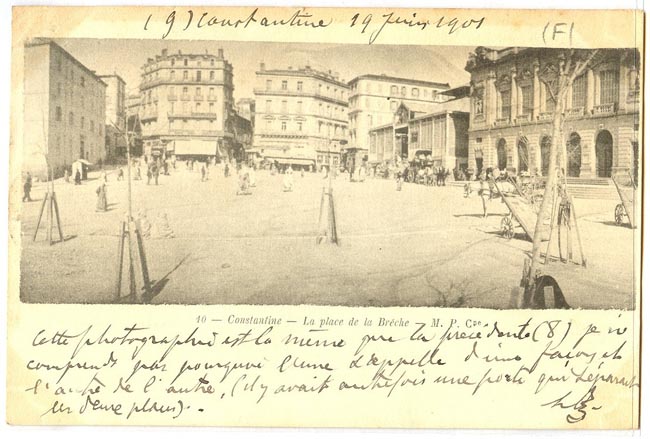 (9) Constantine 19 Juin 1901 (F)
10 — Constantine — La place de la Brèche M. P. Cne
Cette photographie est la même que la précédente (8) je ne
comprends pas pourquoi l'une s'appelle d'une façon et
l'autre de l'autre, (il y avait autrefois une porte qui séparait
les deux places).